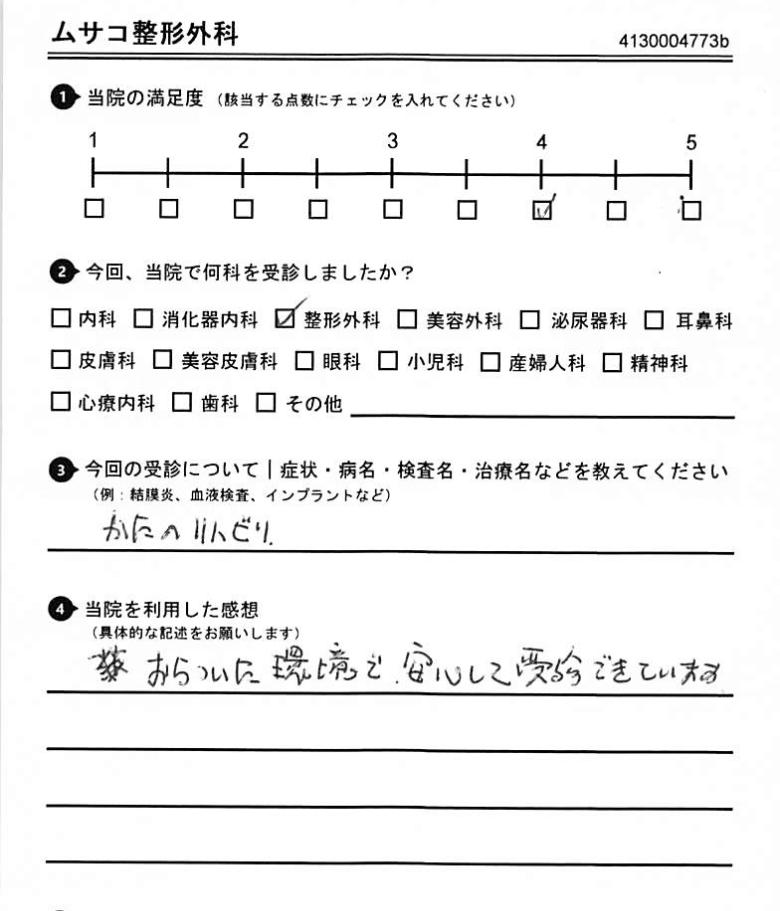 ムサコ整形外科
4130004773b
1 当院の満足度 (該当する点数にチェックを入れてください)
1 2 3 4 5
2 今回、当院で何科を受診しましたか?
内科 消化器内科 整形外科 美容外科 泌尿器科 耳鼻科
皮膚科 美容皮膚科 眼科 小児科 産婦人科 精神科
心療内科 歯科 その他
3 今回の受診について|症状・病名・検査名・治療名などを教えてください
(例:結膜炎、血液検査、インプラントなど)
かたのリハビリ.
4 当院を利用した感想
(具体的な記述をお願いします)
おちついた環境で安心して受診できています